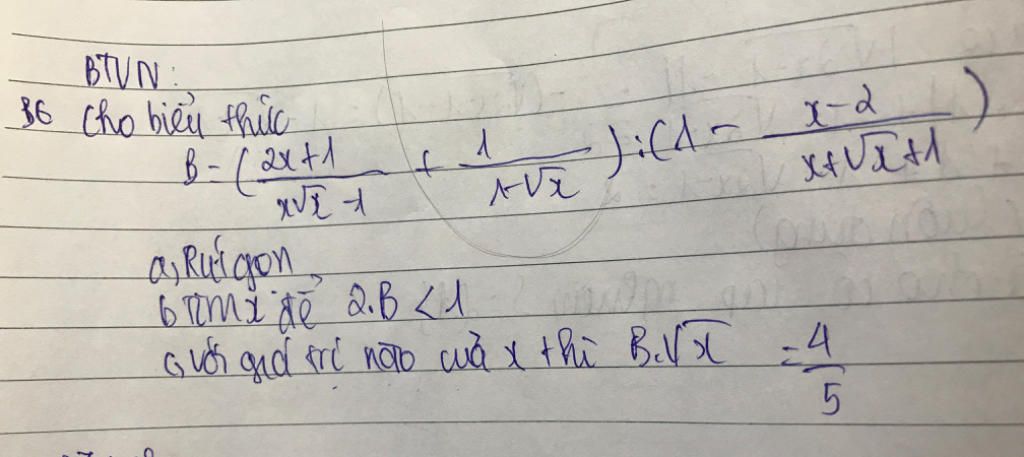 BTVN:
B6 Cho biểu thức
B = (2x+1 / x√x - 1 + 1 / 1-√x) : (1 - x-2 / x+√x+1)
a, Rút gọn
b Tìm x để 2.B < 1
c, Với giá trị nào của x thì B.√x = 4/5